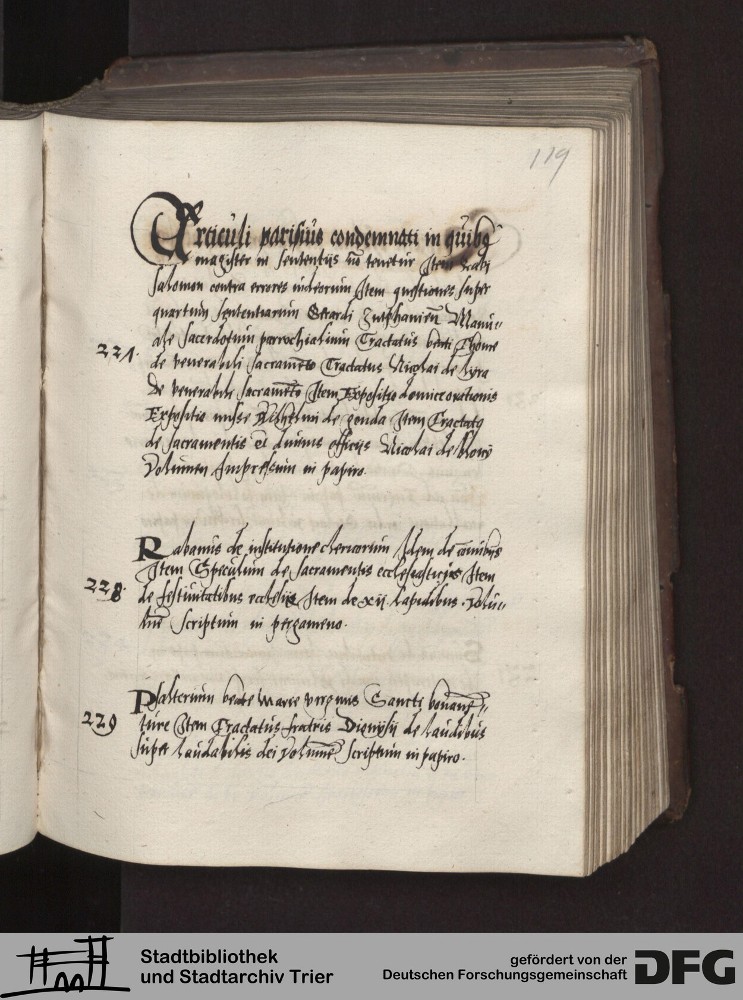 119
Articuli parisius condemnati in quibꝯ
magister in sententijs nō tenetur Item Rabi
Salomon contra errores iudeorum Item questiones super
quartum sententiarum Gerardi Zutphanien̄ Manu„
ale sacerdotum parrochialium Tractatus beati Thome
221.
de venerabili sacramēto Tractatus Nicolai de lyra
de venerabili sacramēto Item Expositio dominice orationis
Expositio misse Wilhelmi de gouda Item Tractatꝯ
de sacramentis et diuinis officijs Nicolai de
Volumen Impressum in papiro.
Rabanus de institutione clericorum Idem de
Item Speculum de sacramentis ecclesiasticis Item
228.
de festiuitatibus ecclesie Item de xij lapidibus. Volu„
mē scriptum in pergameno.
Psalterium beate marie virginis Sancti bonauē„
229
ture Item Tractatus fratris Dionysij de laudibus
super laudabilis dei Volumē scriptum in papiro.
Stadtbibliothek
und Stadtarchiv Trier
gefördert von der
Deutschen Forschungsgemeinschaft
DFG